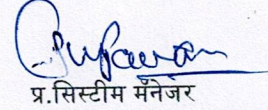 प्र.सिस्टीम मॅनेजर